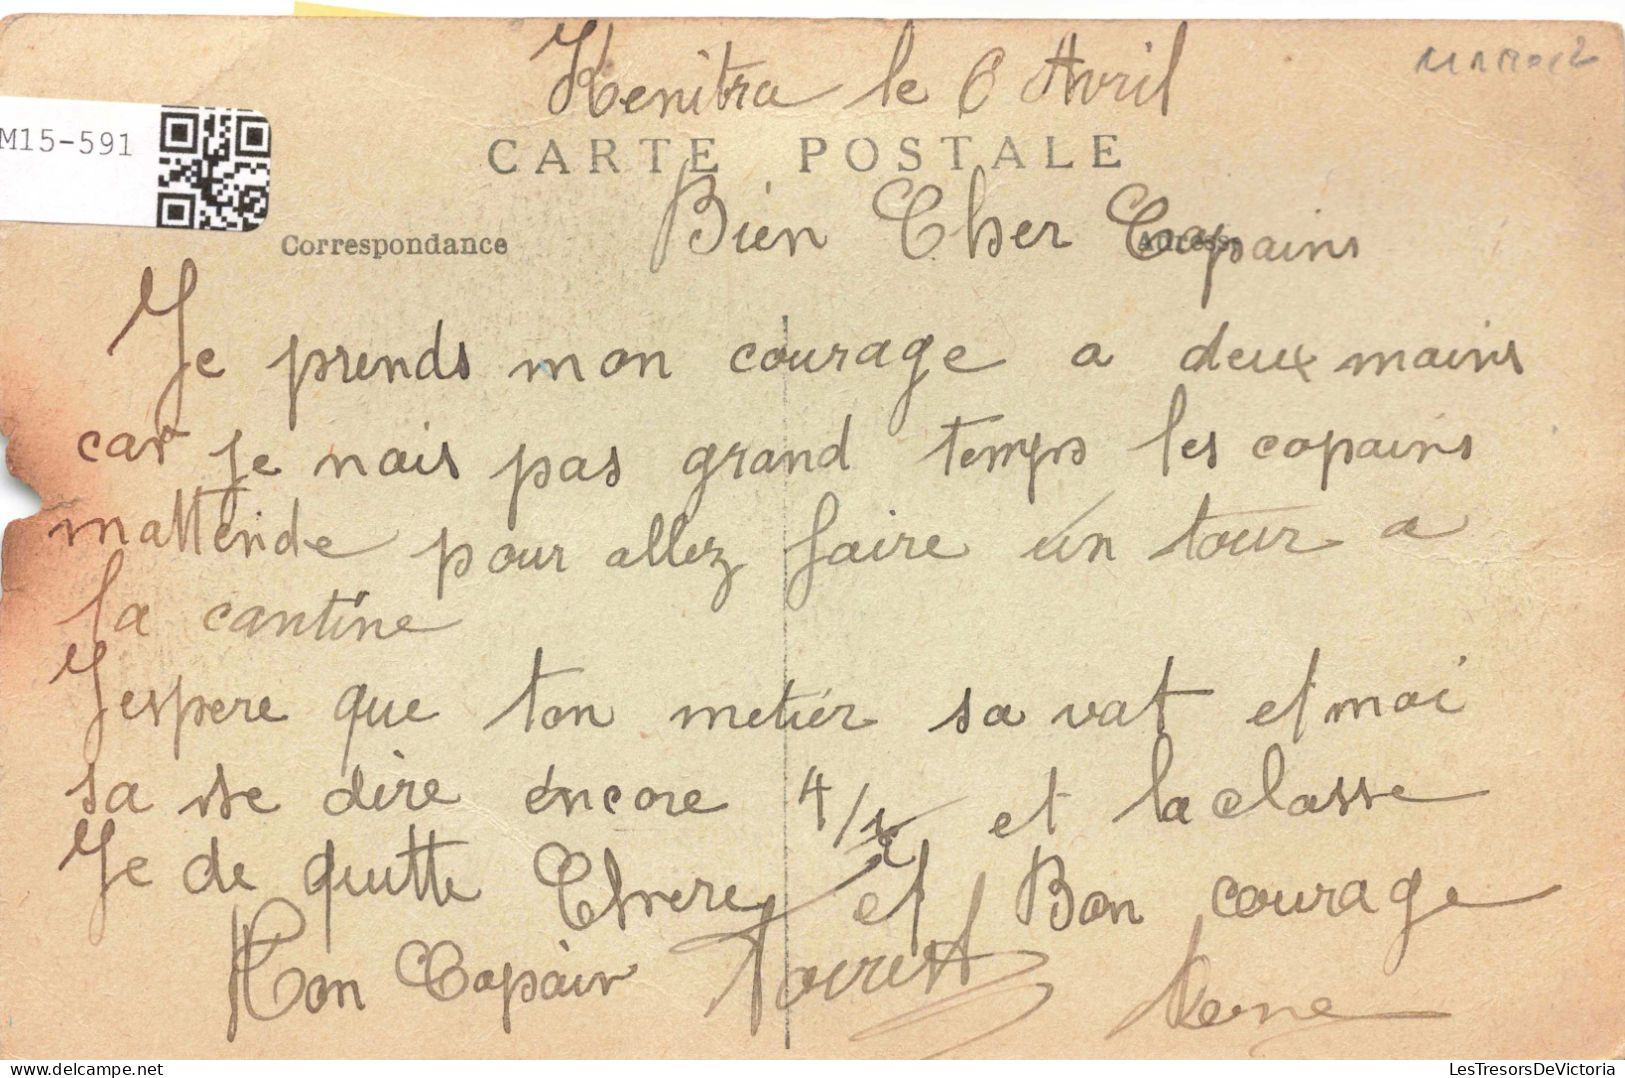 Kenitra le 6 Avril
CARTE POSTALE
M15-591
Bien Cher Copains
Correspondance
Adresse
Je prends mon courage a deux mains
car je nais pas grand temps les copains
mattende pour allez faire un tour a
la cantine
Jespere que ton metier sa vat et moi
sa se dire encore 4/ et la classe
Je de quitte Chere et Bon courage
Ton Copain
LesTresorsDeVictoria
delcampe.net